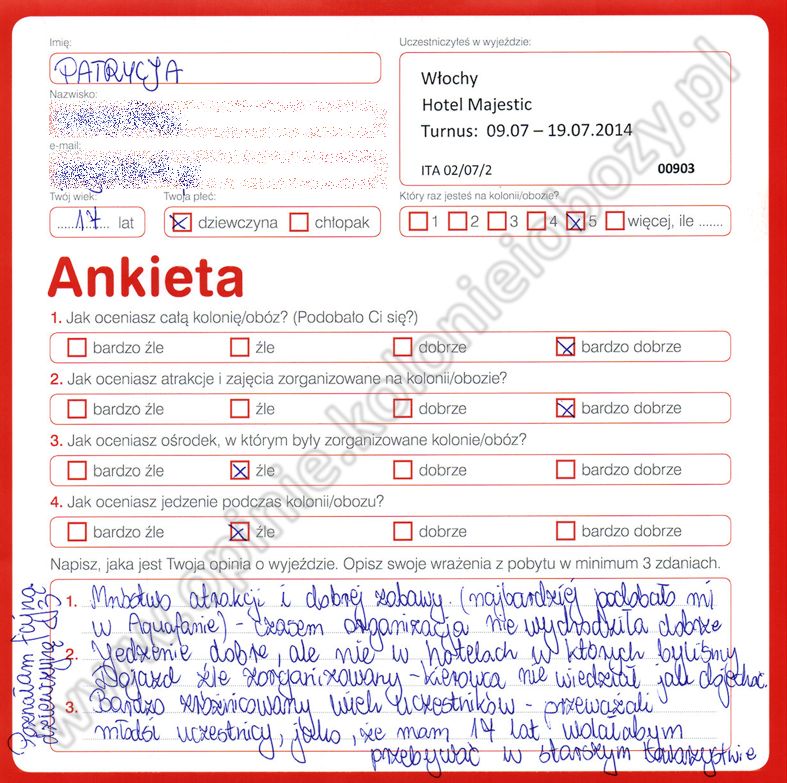 Imię:
PATRYCJA
Nazwisko:
e-mail:
Twój wiek:
17 lat
Twoja płeć:
dziewczyna chłopak
Uczestniczyłeś w wyjeździe:
Włochy
Hotel Majestic
Turnus: 09.07 – 19.07.2014
ITA 02/07/2 00903
Który raz jesteś na kolonii/obozie?
1 2 3 4 5 więcej, ile .......
Ankieta
1. Jak oceniasz całą kolonię/obóz? (Podobało Ci się?)
bardzo źle źle dobrze bardzo dobrze
2. Jak oceniasz atrakcje i zajęcia zorganizowane na kolonii/obozie?
bardzo źle źle dobrze bardzo dobrze
3. Jak oceniasz ośrodek, w którym były zorganizowane kolonie/obóz?
bardzo źle źle dobrze bardzo dobrze
4. Jak oceniasz jedzenie podczas kolonii/obozu?
bardzo źle źle dobrze bardzo dobrze
Napisz, jaka jest Twoja opinia o wyjeździe. Opisz swoje wrażenia z pobytu w minimum 3 zdaniach.
1. Mnóstwo atrakcji i dobrej zabawy. (najbardziej podobało mi
w Aquafanie) - czasem organizacja nie wychodziła dobrze
2. Jedzenie dobre, ale nie w hotelach w których byliśmy
Dojazd źle zorganizowany - kierowca nie wiedział jak dojechać.
3. Bardzo zróżnicowany wiek uczestników - przeważali
młodsi uczestnicy, jako, że mam 17 lat, wolałabym
przebywać w starszym towarzystwie
Poznałam fajną
www.opinie.kolonieiobozy.pl